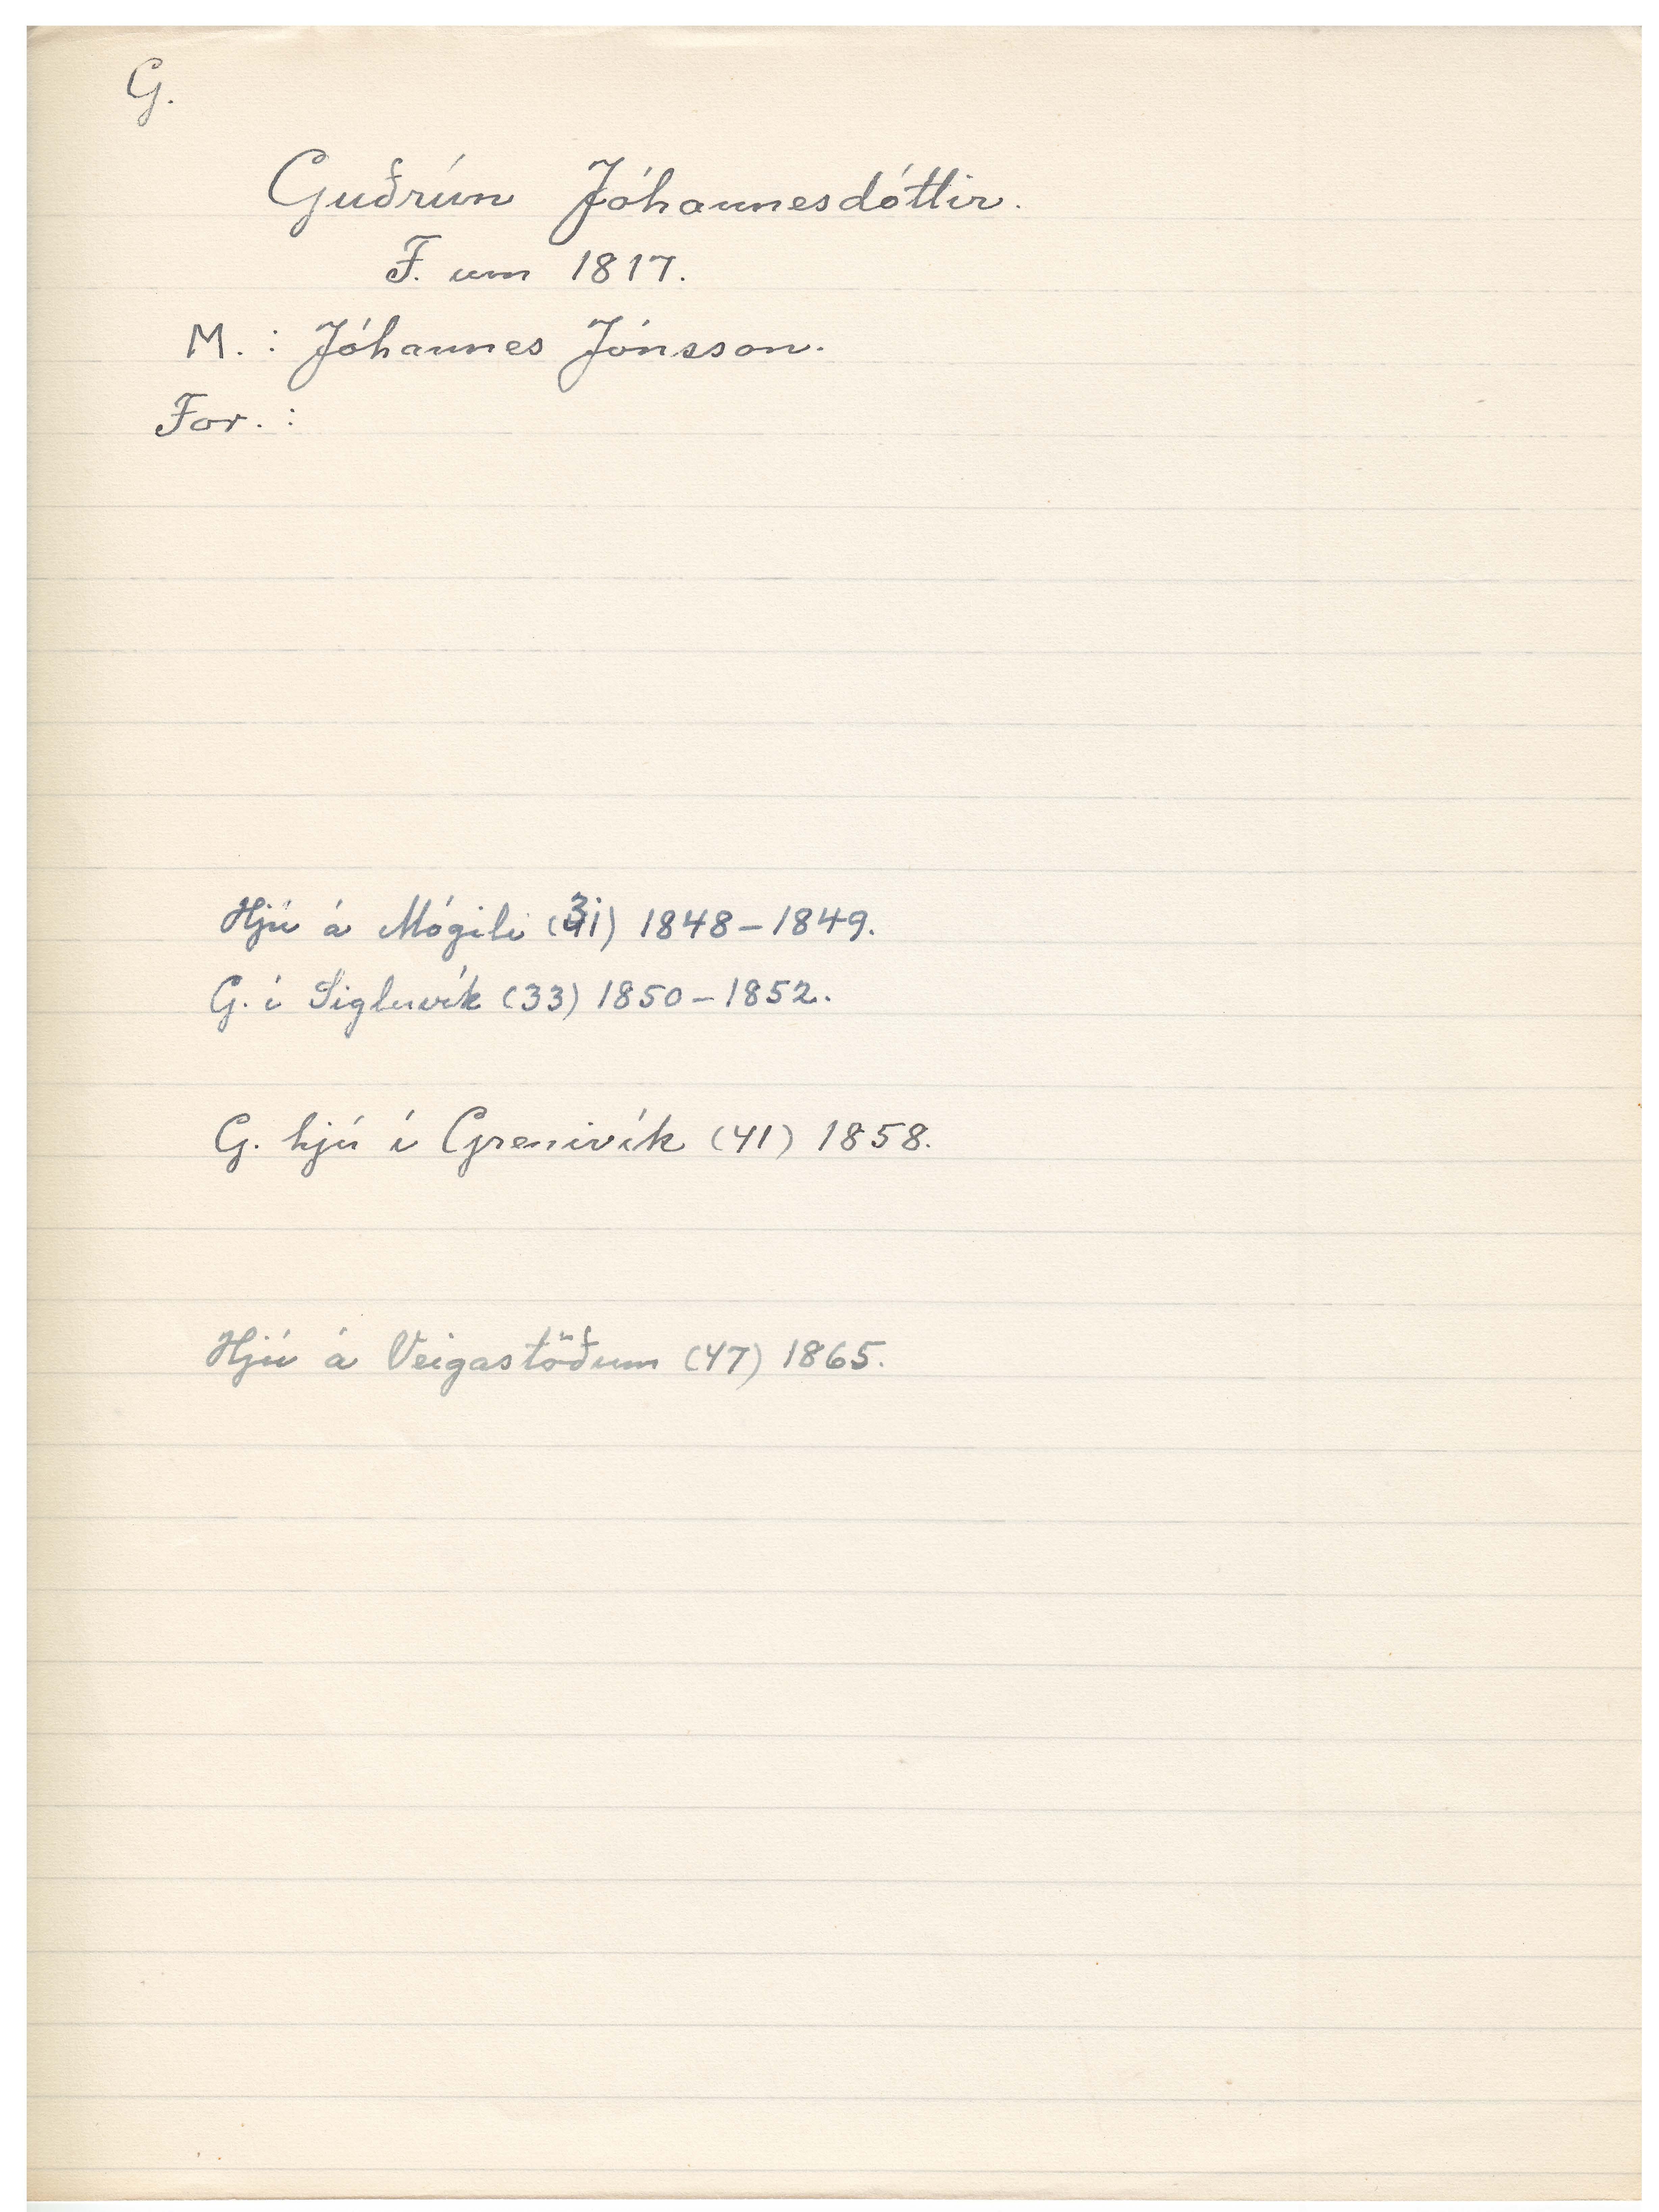 G.
Guðrún Jóhannesdóttir.
F. um 1817.
M. : Jóhannes Jónsson.
For. :
Hjú á Mógili (31) 1848-1849.
G. í Sigluvík (33) 1850-1852.
G. hjú í Grenivík (41) 1858.
Hjú á Veigastöðum (47) 1865.